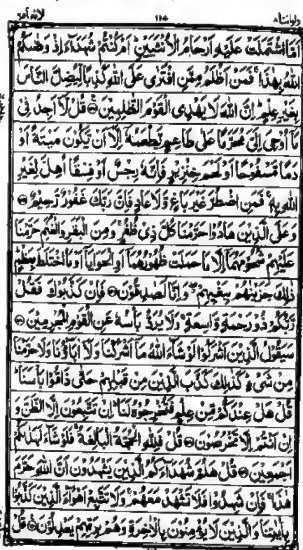 ولواننا ٨ ١١٤ الانعام ٦
اَمَّا اشْتَمَلَتْ عَلَيْهِ اَرْحَامُ الْاُنْثَيَيْنِ ؕ اَمْ كُنْتُمْ شُهَدَآءَ اِذْ وَصّٰىكُمُ
اللّٰهُ بِهٰذَا ۚ فَمَنْ اَظْلَمُ مِمَّنِ افْتَرٰى عَلَى اللّٰهِ كَذِبًا لِّيُضِلَّ النَّاسَ
بِغَيْرِ عِلْمٍ ؕ اِنَّ اللّٰهَ لَا يَهْدِى الْقَوْمَ الظّٰلِمِيْنَ ۝ قُلْ لَّاۤ اَجِدُ فِىْ
مَاۤ اُوْحِىَ اِلَىَّ مُحَرَّمًا عَلٰى طَاعِمٍ يَّطْعَمُهٗۤ اِلَّاۤ اَنْ يَّكُوْنَ مَيْتَةً اَوْ
دَمًا مَّسْفُوْحًا اَوْ لَحْمَ خِنْزِيْرٍ فَاِنَّهٗ رِجْسٌ اَوْ فِسْقًا اُهِلَّ لِغَيْرِ
اللّٰهِ بِهٖ ۚ فَمَنِ اضْطُرَّ غَيْرَ بَاغٍ وَّلَا عَادٍ فَاِنَّ رَبَّكَ غَفُوْرٌ رَّحِيْمٌ ۝
وَعَلَى الَّذِيْنَ هَادُوْا حَرَّمْنَا كُلَّ ذِىْ ظُفُرٍ ۚ وَمِنَ الْبَقَرِ وَالْغَنَمِ حَرَّمْنَا
عَلَيْهِمْ شُحُوْمَهُمَاۤ اِلَّا مَا حَمَلَتْ ظُهُوْرُهُمَاۤ اَوِ الْحَوَايَاۤ اَوْ مَا اخْتَلَطَ بِعَظْمٍ ؕ
ذٰلِكَ جَزَيْنٰهُمْ بِبَغْيِهِمْ ۖ وَاِنَّا لَصٰدِقُوْنَ ۝ فَاِنْ كَذَّبُوْكَ فَقُلْ
رَّبُّكُمْ ذُوْ رَحْمَةٍ وَّاسِعَةٍ ۚ وَلَا يُرَدُّ بَاْسُهٗ عَنِ الْقَوْمِ الْمُجْرِمِيْنَ ۝
سَيَقُوْلُ الَّذِيْنَ اَشْرَكُوْا لَوْ شَآءَ اللّٰهُ مَاۤ اَشْرَكْنَا وَلَاۤ اٰبَآؤُنَا وَلَا حَرَّمْنَا
مِنْ شَىْءٍ ؕ كَذٰلِكَ كَذَّبَ الَّذِيْنَ مِنْ قَبْلِهِمْ حَتّٰى ذَاقُوْا بَاْسَنَا ؕ
قُلْ هَلْ عِنْدَكُمْ مِّنْ عِلْمٍ فَتُخْرِجُوْهُ لَنَا ؕ اِنْ تَتَّبِعُوْنَ اِلَّا الظَّنَّ وَ
اِنْ اَنْتُمْ اِلَّا تَخْرُصُوْنَ ۝ قُلْ فَلِلّٰهِ الْحُجَّةُ الْبَالِغَةُ ۚ فَلَوْ شَآءَ لَهَدٰىكُمْ
اَجْمَعِيْنَ ۝ قُلْ هَلُمَّ شُهَدَآءَكُمُ الَّذِيْنَ يَشْهَدُوْنَ اَنَّ اللّٰهَ حَرَّمَ
هٰذَا ۚ فَاِنْ شَهِدُوْا فَلَا تَشْهَدْ مَعَهُمْ ۚ وَلَا تَتَّبِعْ اَهْوَآءَ الَّذِيْنَ كَذَّبُوْا
بِاٰيٰتِنَا وَالَّذِيْنَ لَا يُؤْمِنُوْنَ بِالْاٰخِرَةِ وَهُمْ بِرَبِّهِمْ يَعْدِلُوْنَ ۝ قُلْ